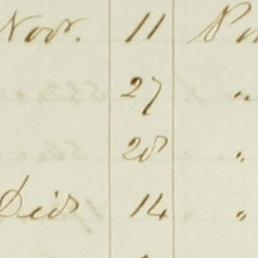 Nov. 11
27 "
28 "
Dec 14 "